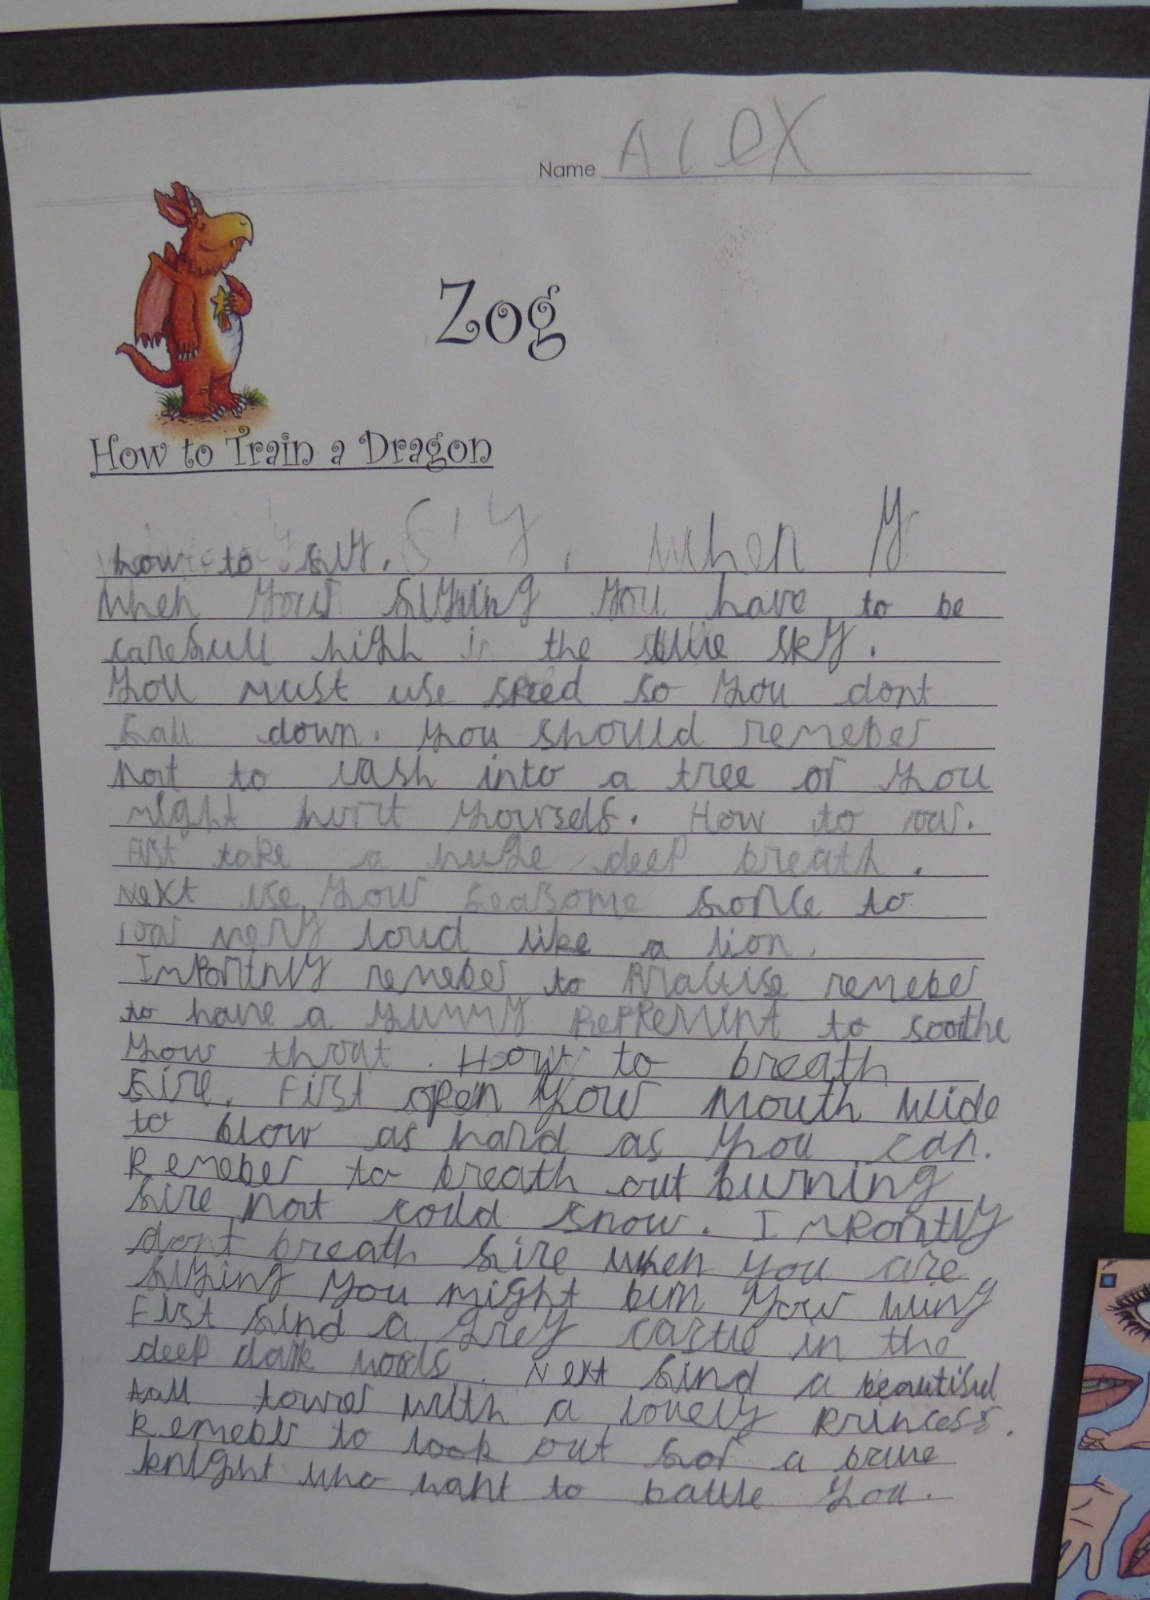 Name ALex
Zog
How to Train a Dragon
how to fly.
When your flying you have to be
carefull high in the blue sky.
You must use speed so you dont
fall down. You should remeber
not to crash into a tree or you
might hurt yourself. How to roar.
First take a huge deep breath.
Next use your fearsome force to
roar very loud like a lion.
Importntly remeber to practise remeber
to have a yummy peppermint to soothe
your throat. How to breath
fire. First open your mouth wide
to blow as hard as you can.
Remeber to breath out burning
fire not cold snow. Importntly
dont breath fire when you are
flying you might burn your wing
First find a grey castle in the
deep dark woods. Next find a beautiful
tall tower with a lovely princess.
Remeber to look out for a brave
knight who waht to battle you.